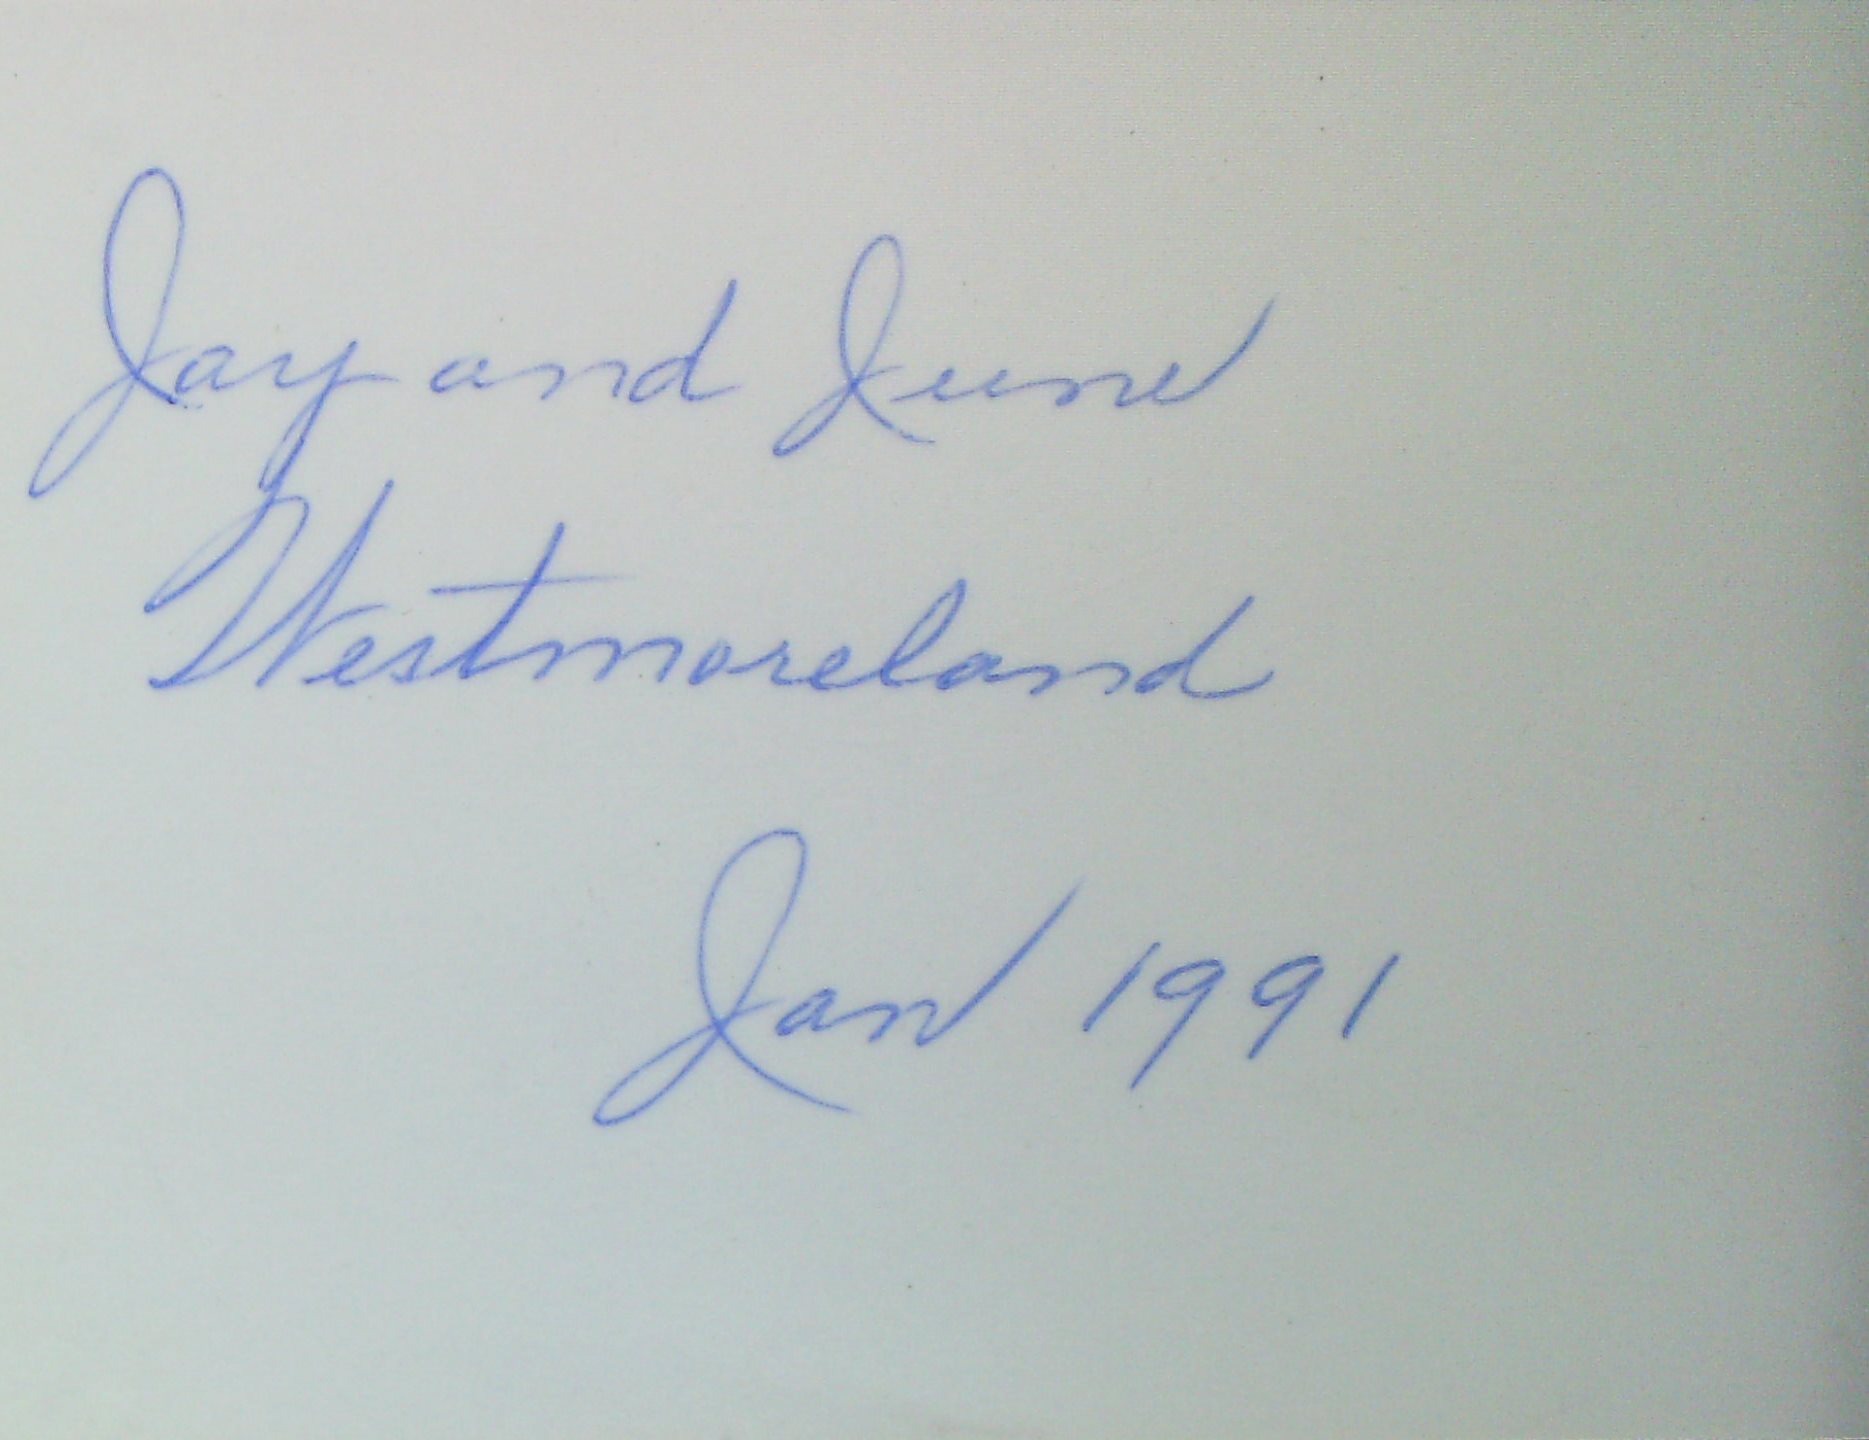 Jay and June
Westmoreland
Jan 1991